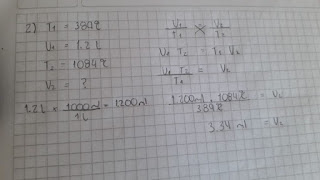 2) T₁ = 384 °C
V₁ = 1.2 L
T₂ = 1084 °C
V₂ = ?
1.2 L × 1000 ml / 1 L = 1200 ml
V₁ / T₁ × V₂ / T₂
V₁ T₂ = T₁ V₂
V₁ T₂ / T₁ = V₂
1.200 ml . 1084 °C / 384 °C = V₂
3.34 ml = V₂